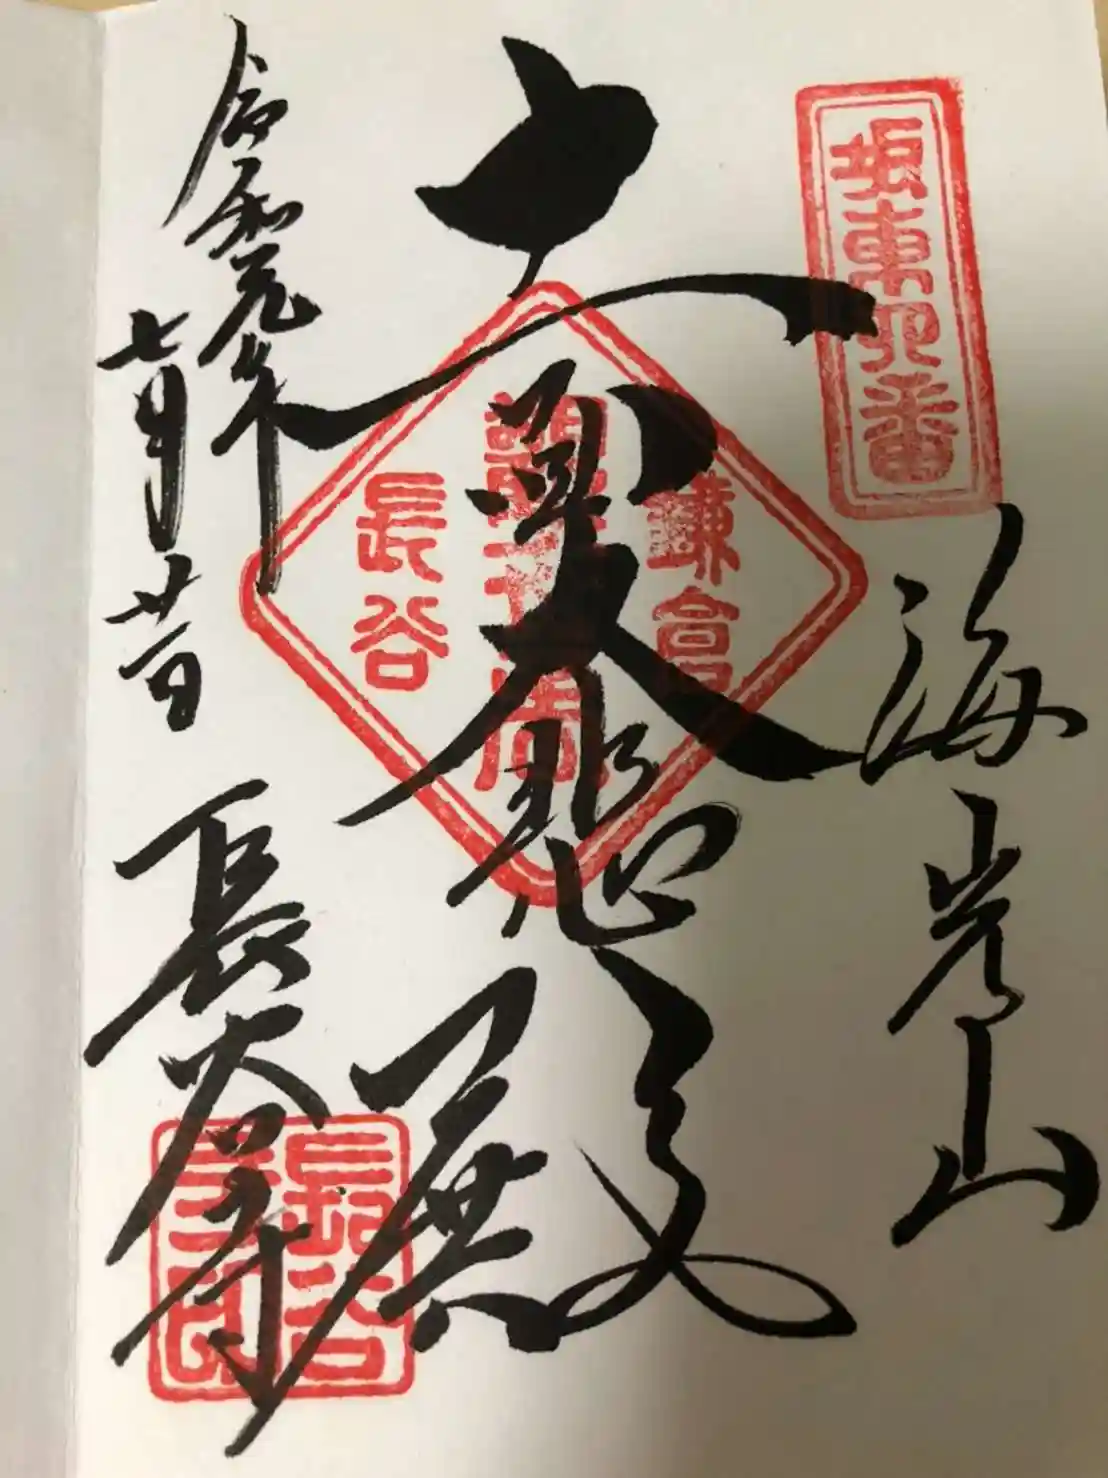 坂東四番
海光山
十一面大悲殿
鎌倉
長谷
令和元年
七月廿一日
長谷寺
長谷
寺印